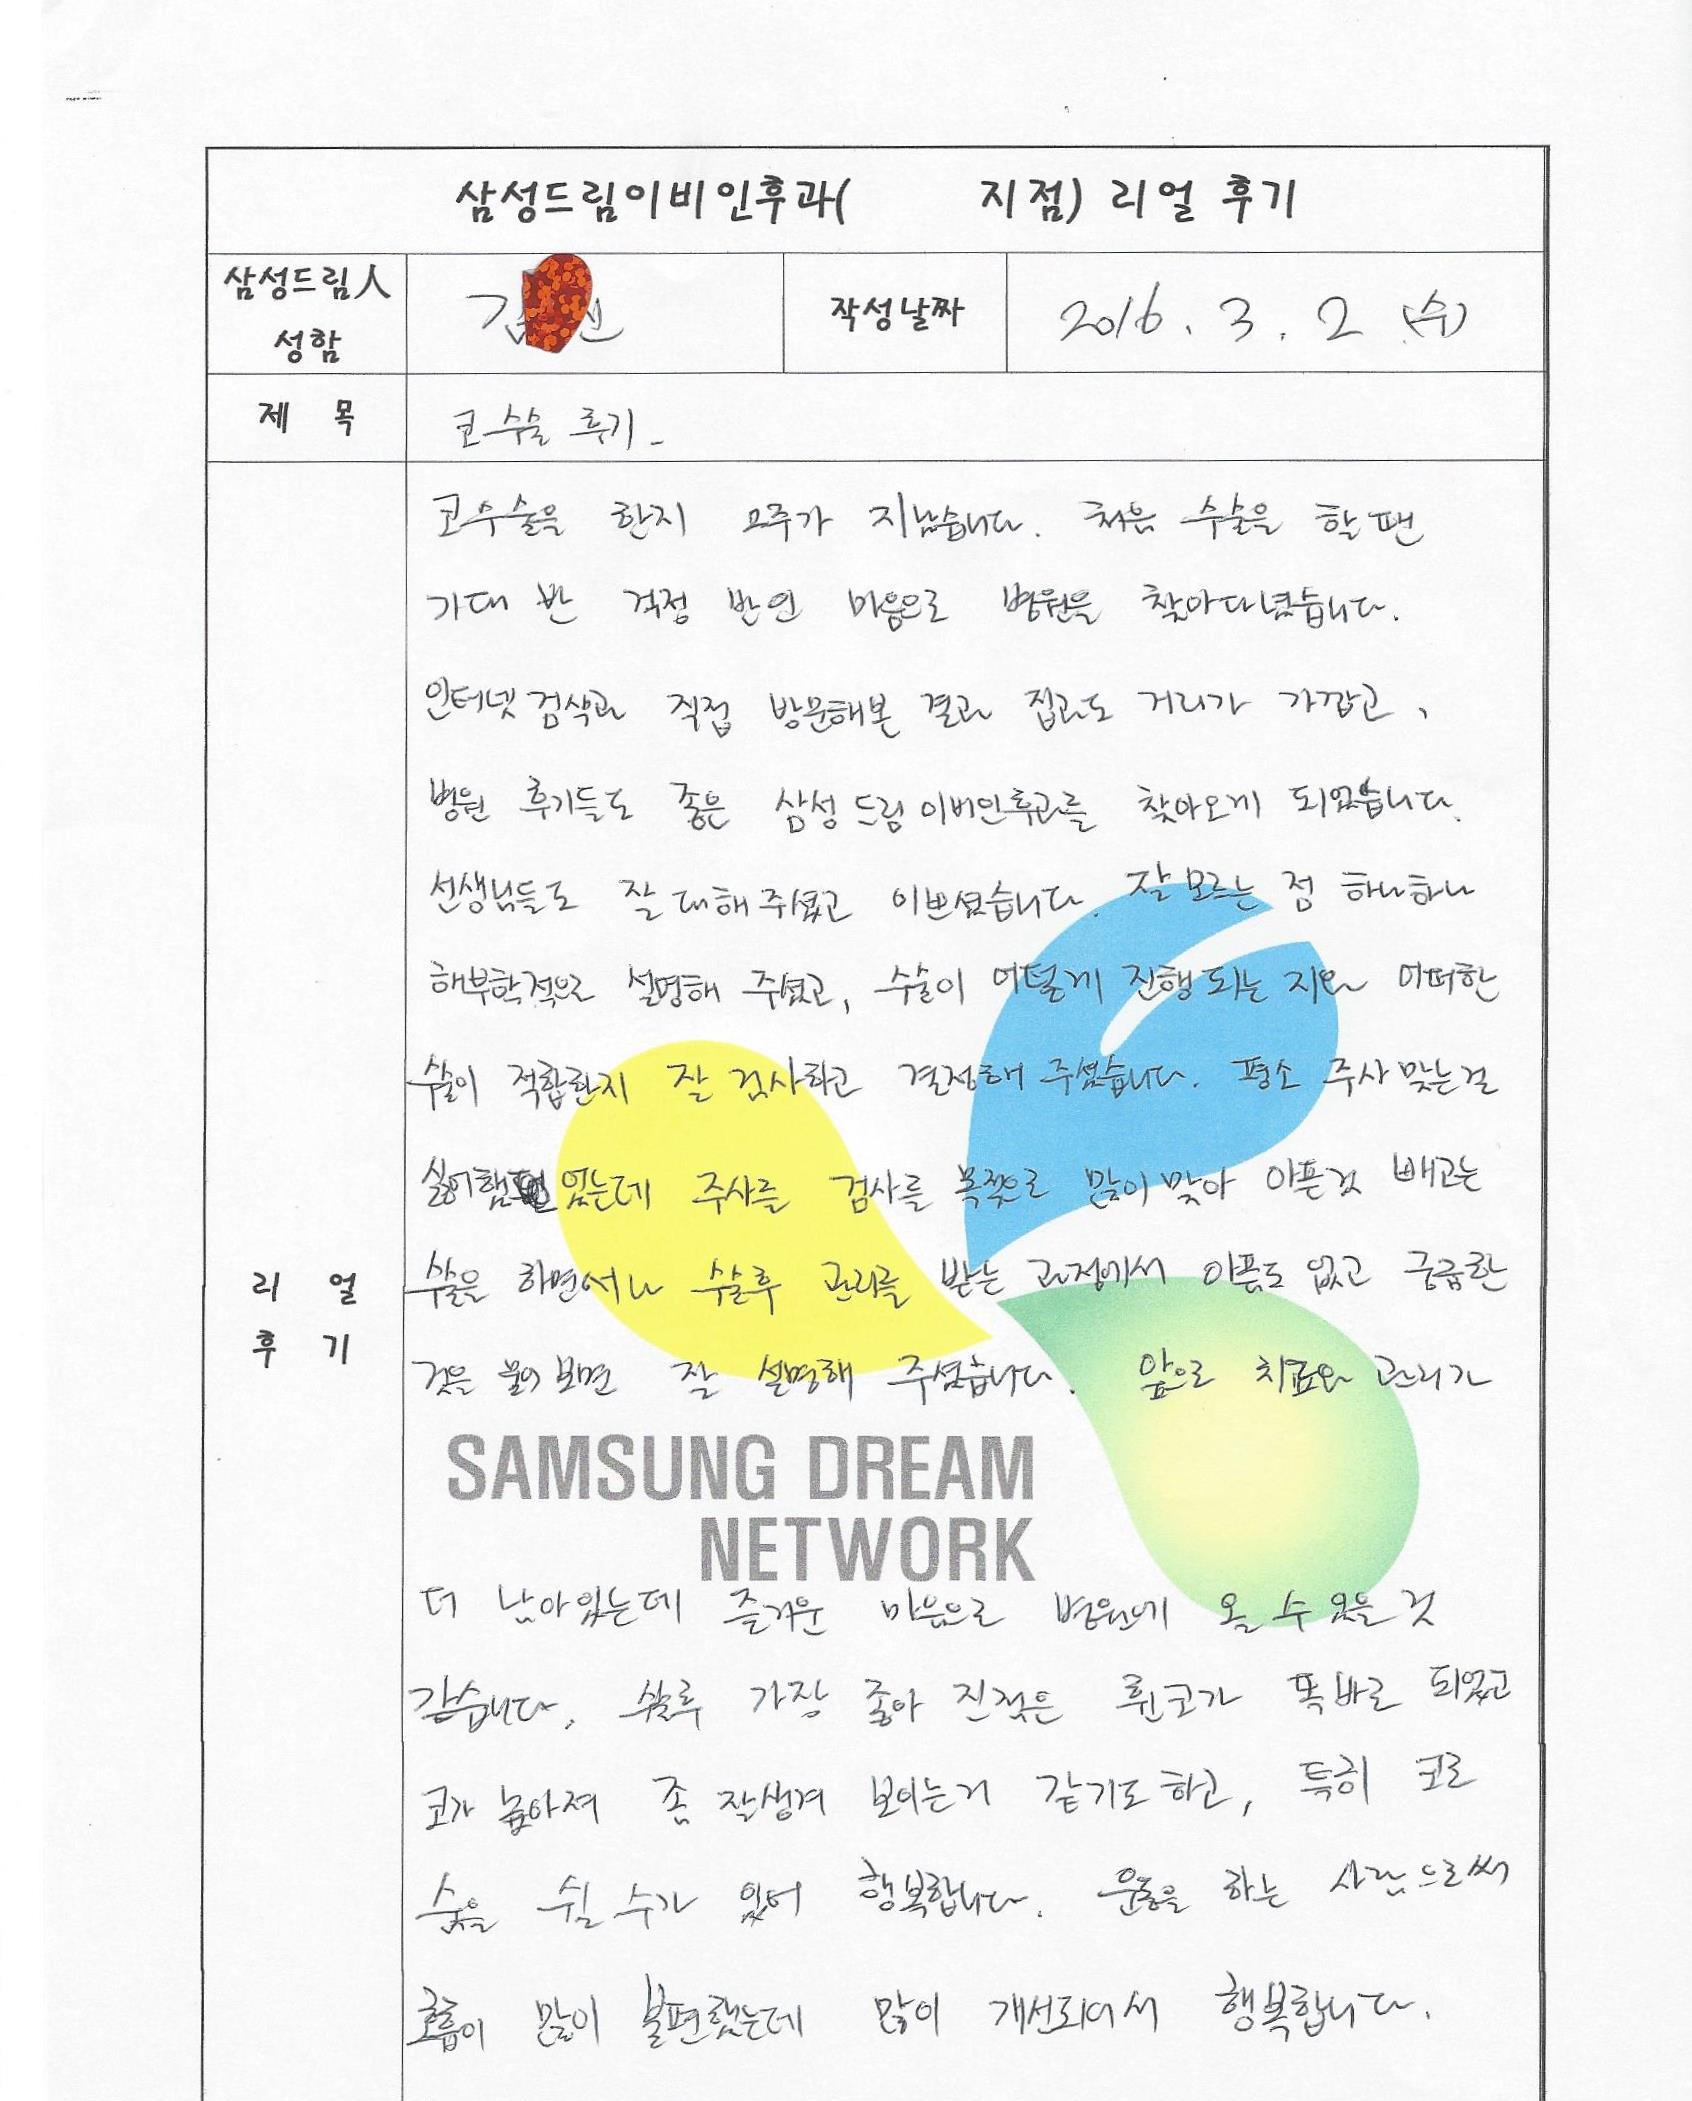 삼성드림이비인후과( 지점) 리얼 후기
삼성드림人
성함
김
작성날짜
2016. 3. 2 (수)
제 목
코수술 후기-
코수술을 한지 2주가 지났습니다. 처음 수술을 할 땐
기대 반 걱정 반인 마음으로 병원을 찾아다녔습니다.
인터넷 검색과 직접 방문해본 결과 집과도 거리가 가깝고,
병원 후기들도 좋은 삼성드림이비인후과를 찾아오게 되었습니다.
선생님들도 잘 대해주셨고 이쁘셨습니다. 잘 모르는 점 하나하나
해부학적으로 설명해 주셨고, 수술이 어떻게 진행되는 지와 어떠한
수술이 적합한지 잘 검사하고 결정해 주셨습니다. 평소 주사 맞는걸
싫어했었는데 주사를 검사를 목적으로 많이 맞아 아픈것 빼고는
수술을 하면서나 수술후 관리를 받는 과정에서 아픔도 없고 궁금한
것을 물어보면 잘 설명해 주셨습니다. 앞으로 치료와 관리가
SAMSUNG DREAM
NETWORK
더 남아있는데 즐거운 마음으로 병원에 올 수 있을 것
같습니다. 수술후 가장 좋아 진점은 휜코가 똑바로 되었고
코가 높아져 좀 잘생겨 보이는거 같기도 하고, 특히 코로
숨을 쉴 수가 있어 행복합니다. 운동을 하는 사람으로써
호흡이 많이 불편했는데 많이 개선되어서 행복합니다.
리 얼
후 기